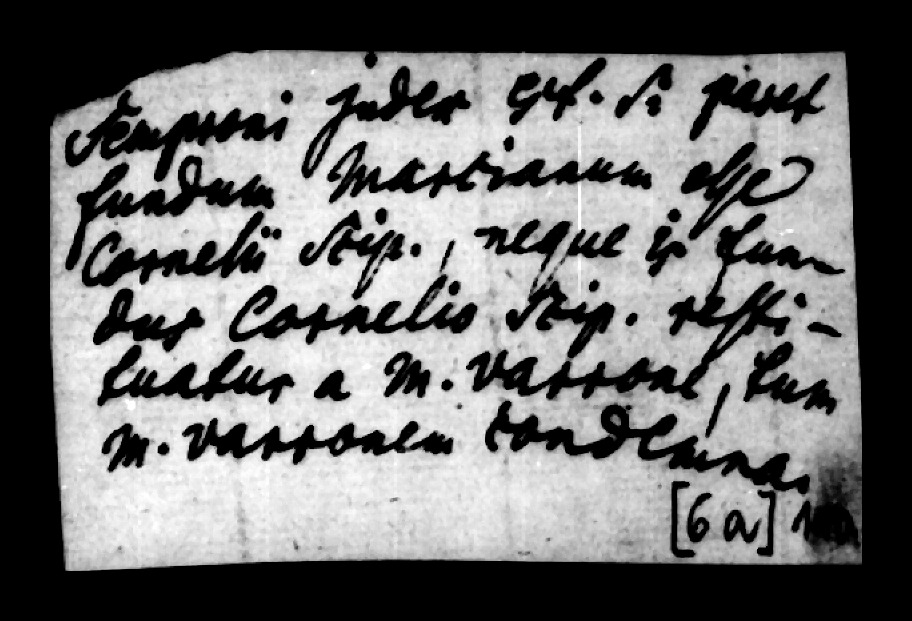 Semproni judex est. Si paret
fundum Marcianum esse
Cornelii Scip., neque is fun-
dus Cornelio Scip. resti-
tuatur a M. Varrone, tum
M. Varronem condemna.
[6a]